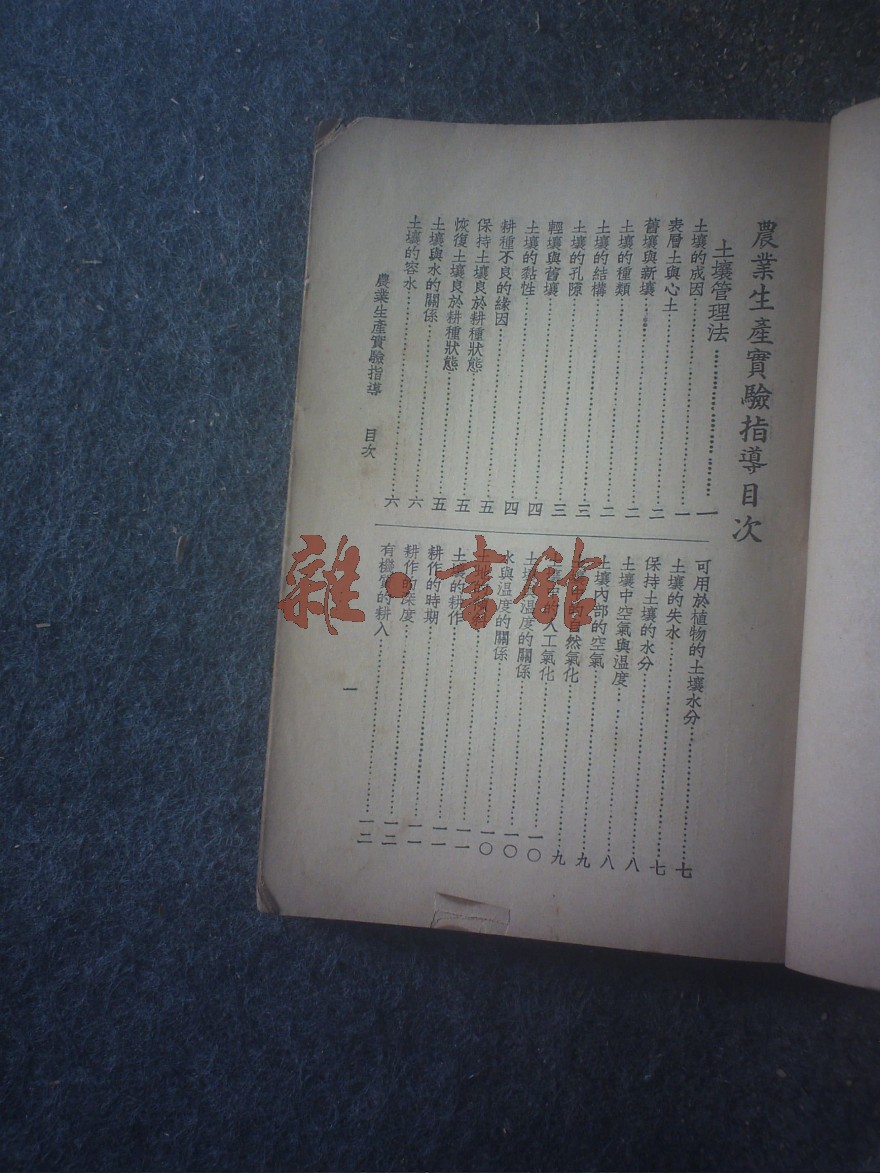 農業生產實驗指導目次
土壤管理法……一
土壤的成因……一
表層土與心土……二
舊壤與新壤……二
土壤的種類……二
土壤的結構……三
土壤的孔隙……三
輕壤與舊壤……四
土壤的黏性……四
耕種不良的緣因……五
保持土壤良於耕種狀態……五
恢復土壤良於耕種狀態……五
土壤與水的關係……六
土壤的容水……六
可用於植物的土壤水分……七
土壤的失水……七
保持土壤的水分……八
土壤中空氣與溫度……八
土壤內部的空氣……九
的自然氣化……九
的人工氣化……一〇
土 溫度的關係……一〇
水與溫度的關係……一〇
……一一
土壤的耕作……一一
耕作的時期……一一
耕作的深度……一二
有機質的耕入……一二
農業生產實驗指導 目次
一
雜·書館